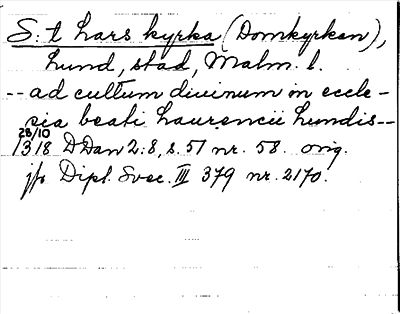 S:t Lars kyrka (Domkyrkan),
Lund, stad, Malm. l.
-- ad cultum divinum in eccle-
sia beati Laurencii Lundis --
28/10
1318 DDan 2:8, s. 51 nr. 58. orig.
jfr Dipl. Svec. III 379 nr. 2170.